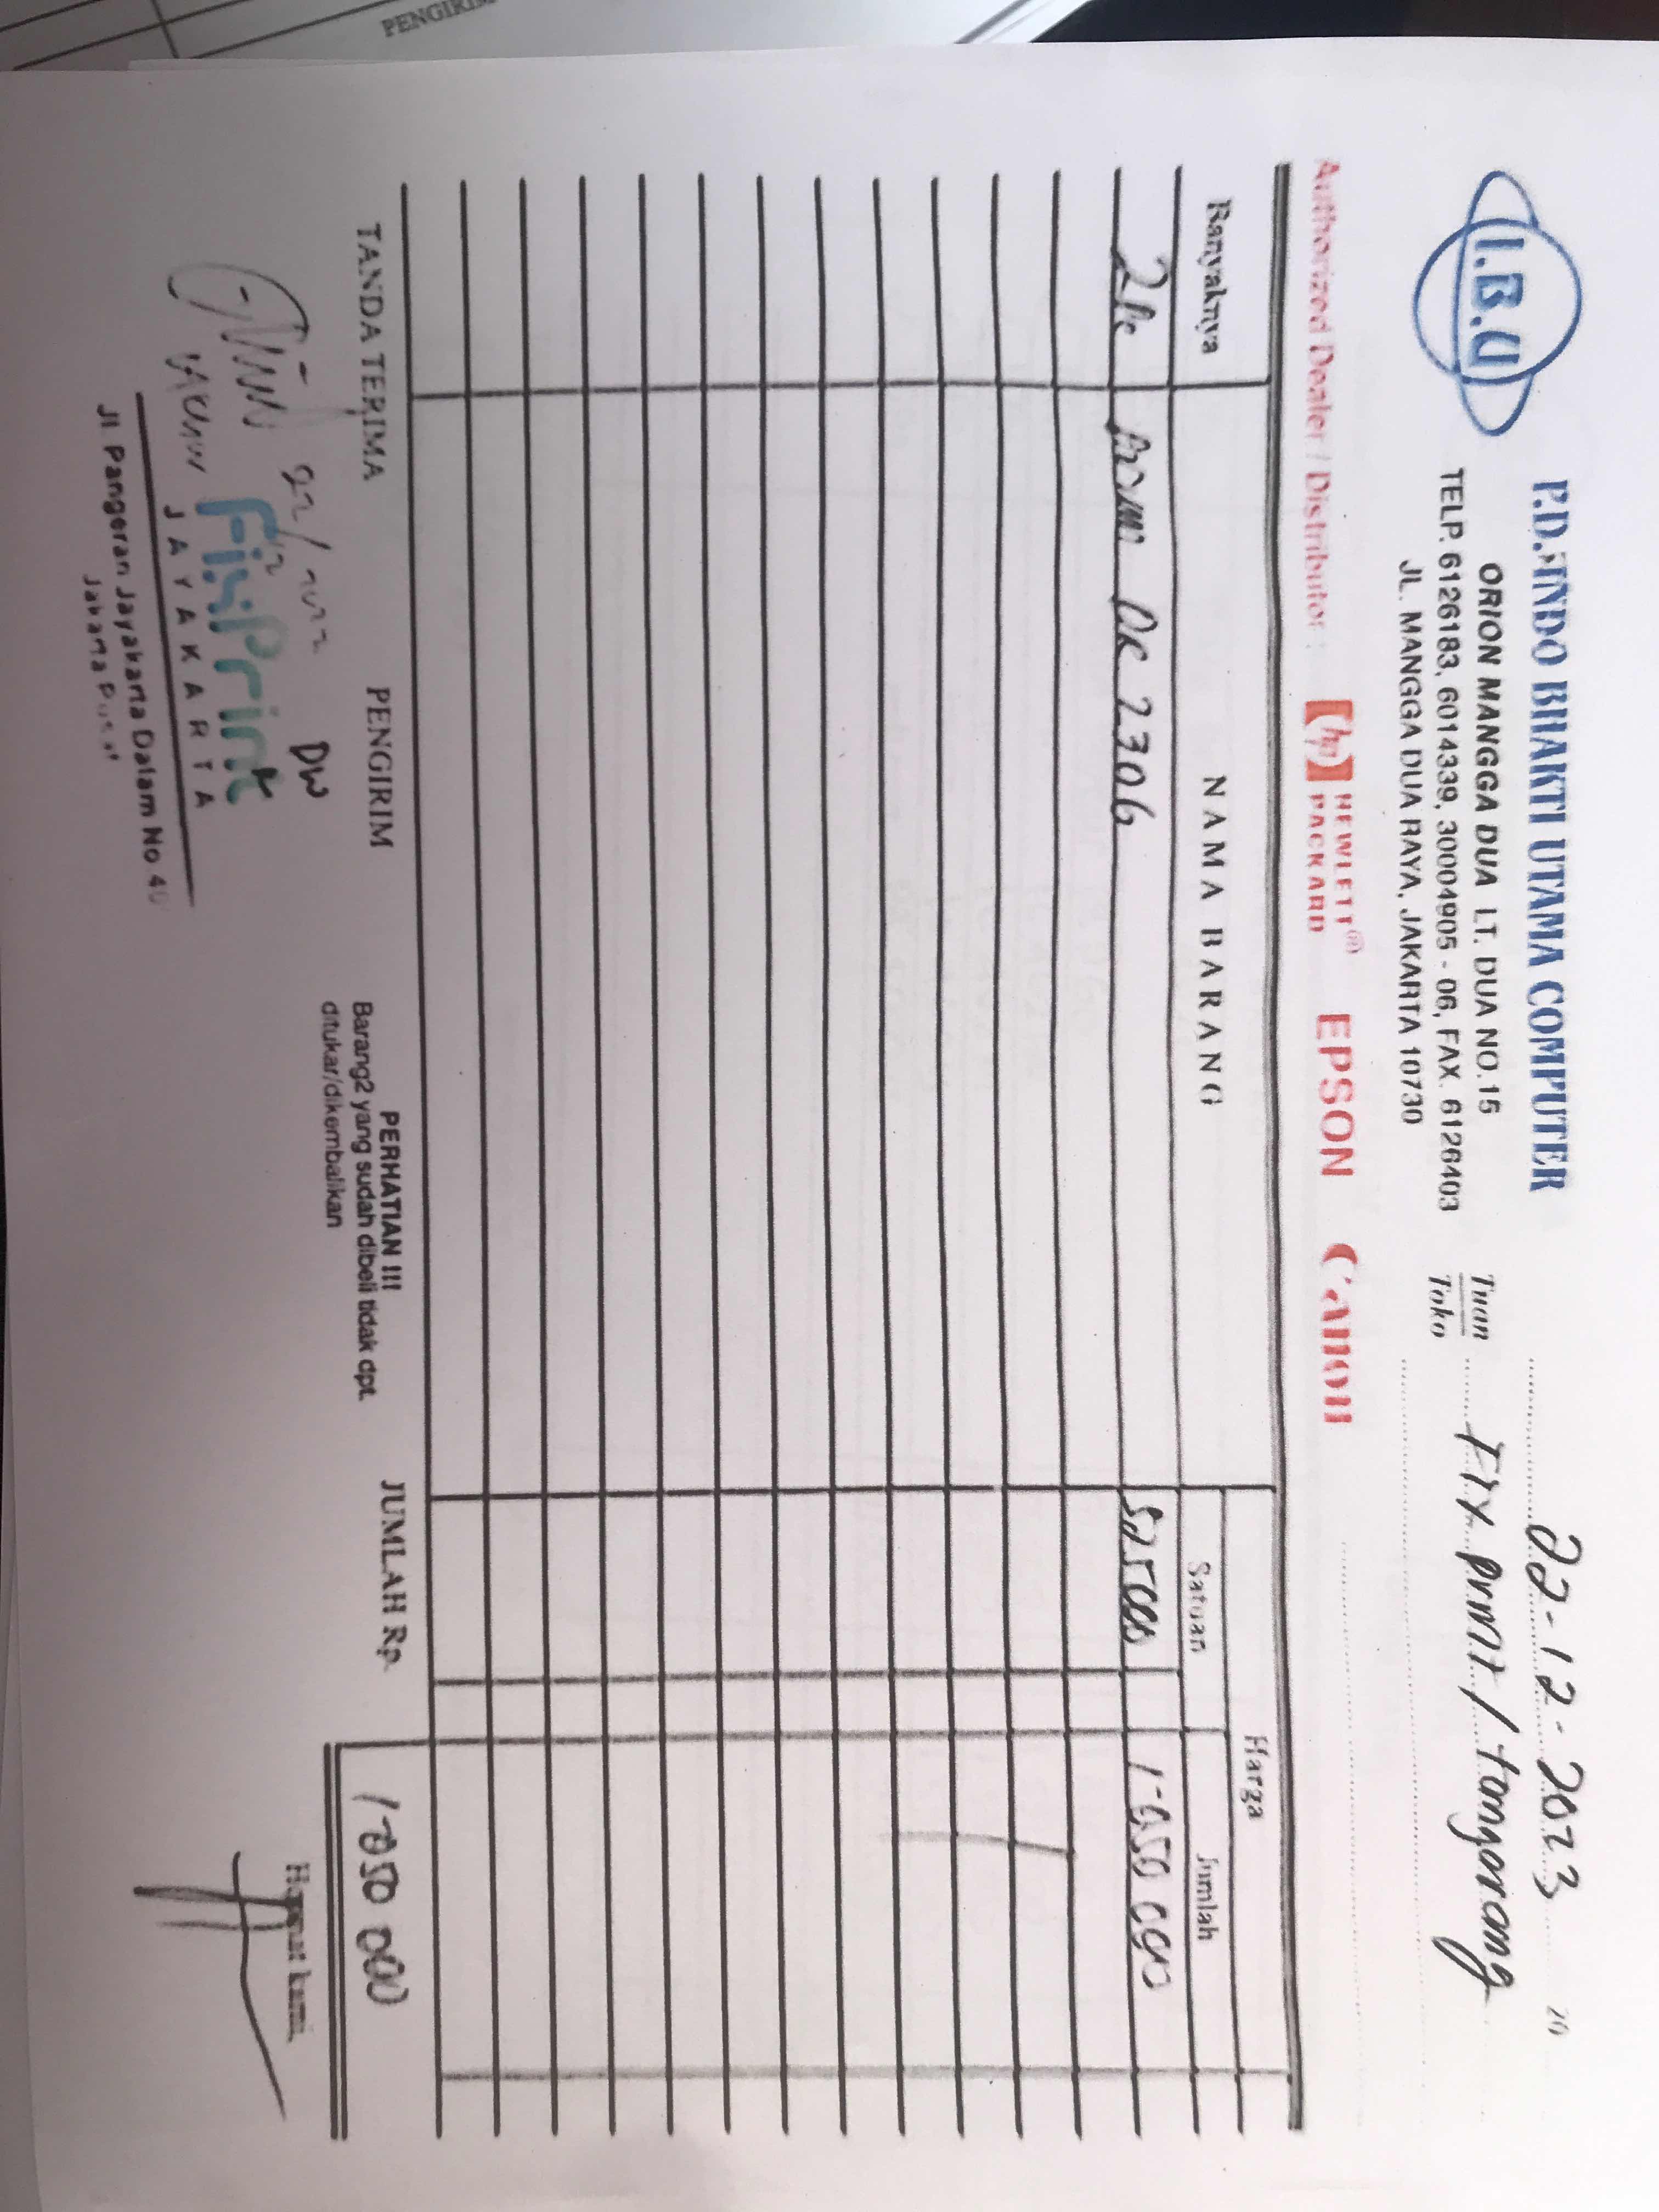 PENGIRIM
I.B.U
P.D. INDO BHAKTI UTAMA COMPUTER
ORION MANGGA DUA LT. DUA NO.15
TELP. 6126183, 6014339, 30004905 - 06, FAX. 6126403
JL. MANGGA DUA RAYA, JAKARTA 10730
22-12-2023 20
Tuan
Toko
Fix Print / tangerang
Authorized Dealer / Distributor : hp HEWLETT® PACKARD EPSON Canon
Banyaknya NAMA BARANG Harga
Satuan Jumlah
2 Pc DR 2306 525000 1-050 000
TANDA TERIMA PENGIRIM PERHATIAN !!! JUMLAH Rp. 1-050 000
Barang2 yang sudah dibeli tidak dpt.
ditukar/dikembalikan
Hormat kami,
22/12
DW
FixPrint
JAYAKARTA
Jl. Pangeran Jayakarta Dalam No.
Jakarta Pusat